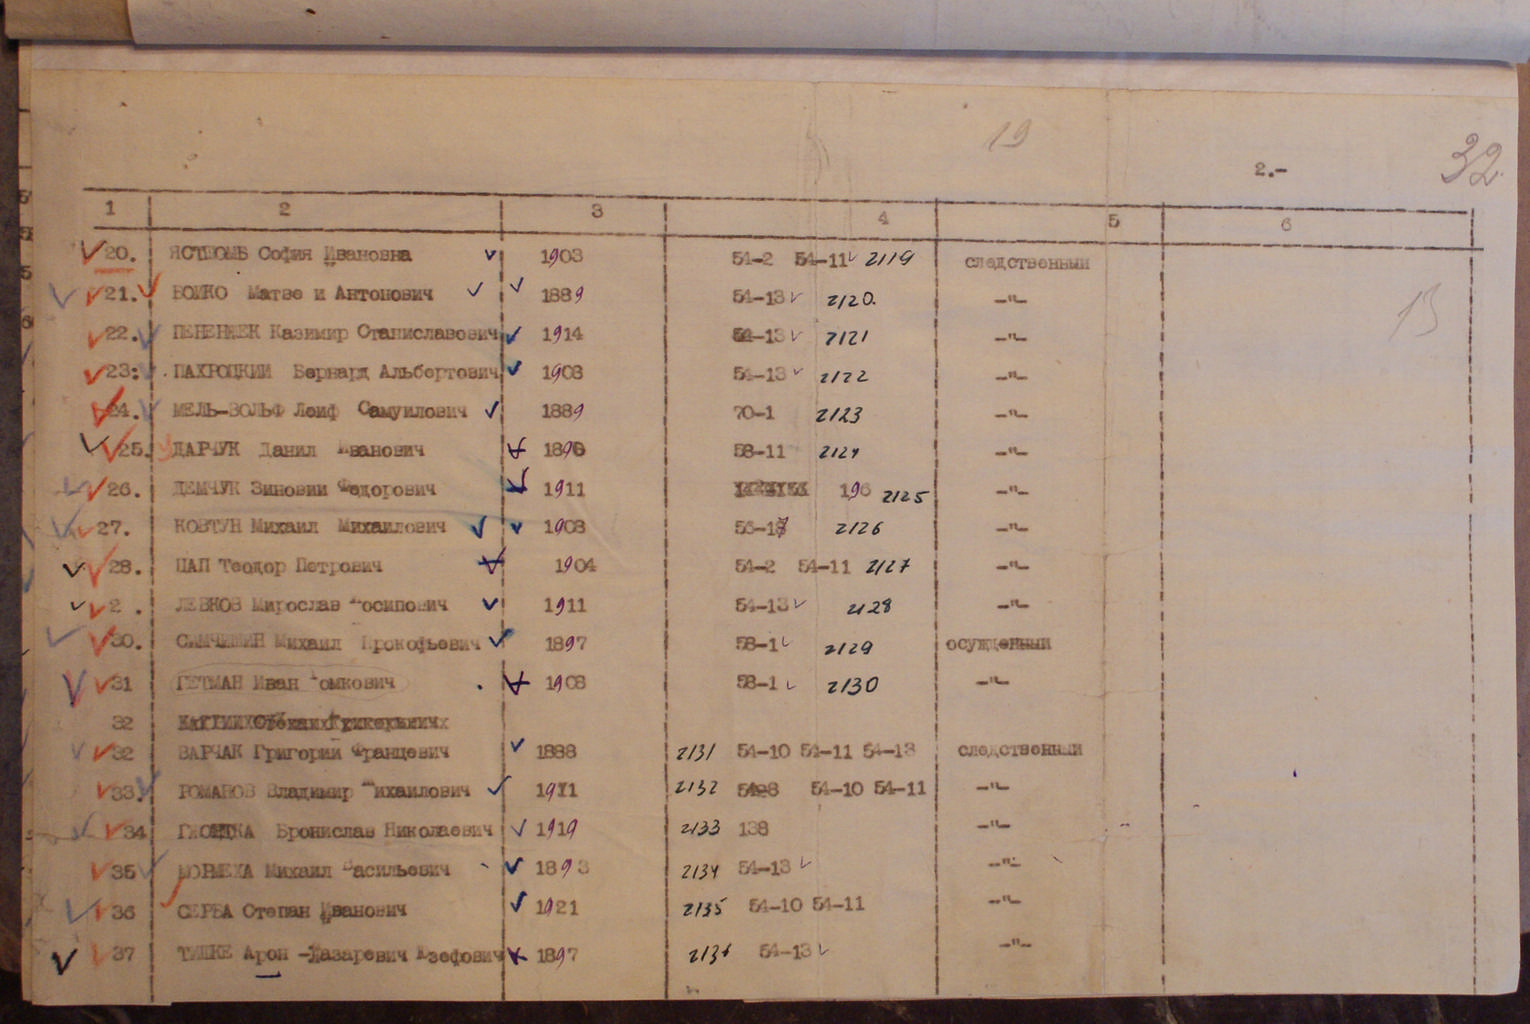 19
2.-
32
1 2 3 4 5 6
20. София Ивановна 1903 54-2 54-11 2119 следственный
21. БОЙКО Матве и Антонович 1889 54-13 2120. -"-
22. Казимир Станиславович 1914 54-13 2121 -"-
13
23: ПАХРОЦКИЙ Бернард Альбертович 1908 54-13 2122 -"-
24. МЕЛЬ-ВОЛЬФ Лейф Самуилович 1889 70-1 2123 -"-
25. ДАРЧУК Данил Иванович 1890 58-11 2124 -"-
26. ДЕМЧУК Зиновий Федорович 1911 196 2125 -"-
27. КОВТУН Михаил Михайлович 1903 2126 -"-
28. ПАП Теодор Петрович 1904 54-2 54-11 2127 -"-
2 . ЛЕВКОВ Мирослав Йосипович 1911 54-13 2128 -"-
30. Михаил Прокофьевич 1897 58-1 2129 осужденный
31 ГЕТМАН Иван Фомкович 1908 58-1 2130 -"-
32
32 ВАРЧАК Григорий Францевич 1888 2131 54-10 54-11 54-13 следственный
33. РОМАНОВ Владимир Михайлович 1911 2132 54-10 54-11 -"-
34 Бронислав Николаевич 1919 2133 138 -"-
35 Михаил Васильевич 1893 2134 54-13 -"-
36 СЕРБА Степан Иванович 1921 2135 54-10 54-11 -"-
37 ТИШКЕ Арон -Лазаревич Юзефович 1897 2136 54-13 -"-